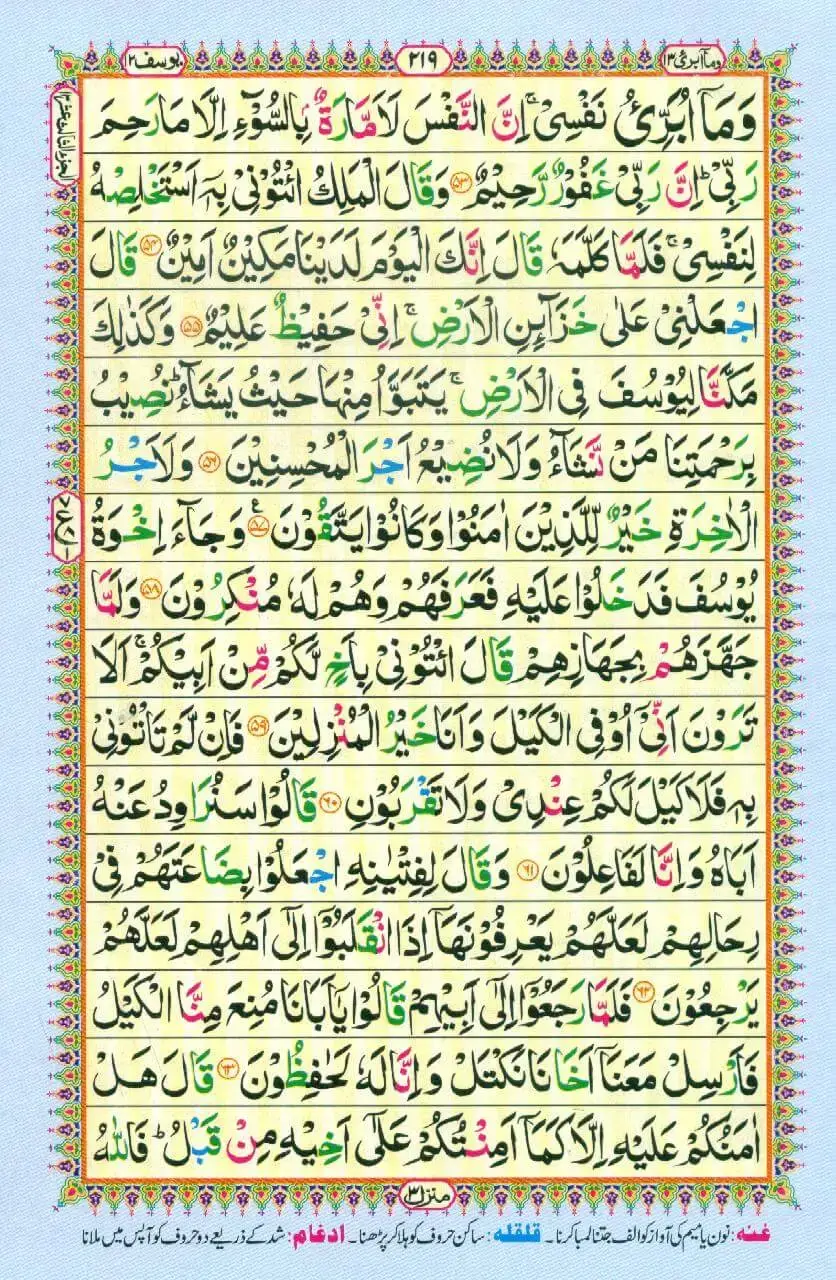 وما ابرئ ۱۳
۲۱۹
يوسف ۱۲
وَمَاۤ اُبَرِّئُ نَفْسِیْ ۚ اِنَّ النَّفْسَ لَاَمَّارَةٌۢ بِالسُّوْٓءِ اِلَّا مَا رَحِمَ
رَبِّیْ ؕ اِنَّ رَبِّیْ غَفُوْرٌ رَّحِیْمٌ ۝۵۳ وَقَالَ الْمَلِكُ ائْتُوْنِیْ بِهٖۤ اَسْتَخْلِصْهُ
لِنَفْسِیْ ۚ فَلَمَّا كَلَّمَهٗ قَالَ اِنَّكَ الْیَوْمَ لَدَیْنَا مَكِیْنٌ اَمِیْنٌ ۝۵۴ قَالَ
اجْعَلْنِیْ عَلٰی خَزَآىِٕنِ الْاَرْضِ ۚ اِنِّیْ حَفِیْظٌ عَلِیْمٌ ۝۵۵ وَكَذٰلِكَ
مَكَّنَّا لِیُوْسُفَ فِی الْاَرْضِ ۚ یَتَبَوَّاُ مِنْهَا حَیْثُ یَشَآءُ ؕ نُصِیْبُ
بِرَحْمَتِنَا مَنْ نَّشَآءُ وَلَا نُضِیْعُ اَجْرَ الْمُحْسِنِیْنَ ۝۵۶ وَلَاَجْرُ
الْاٰخِرَةِ خَیْرٌ لِّلَّذِیْنَ اٰمَنُوْا وَكَانُوْا یَتَّقُوْنَ ۝۵۷ ع وَجَآءَ اِخْوَةُ
یُوْسُفَ فَدَخَلُوْا عَلَیْهِ فَعَرَفَهُمْ وَهُمْ لَهٗ مُنْكِرُوْنَ ۝۵۸ وَلَمَّا
جَهَّزَهُمْ بِجَهَازِهِمْ قَالَ ائْتُوْنِیْ بِاَخٍ لَّكُمْ مِّنْ اَبِیْكُمْ ۚ اَلَا
تَرَوْنَ اَنِّیْۤ اُوْفِی الْكَیْلَ وَاَنَا خَیْرُ الْمُنْزِلِیْنَ ۝۵۹ فَاِنْ لَّمْ تَاْتُوْنِیْ
بِهٖ فَلَا كَیْلَ لَكُمْ عِنْدِیْ وَلَا تَقْرَبُوْنِ ۝۶۰ قَالُوْا سَنُرَاوِدُ عَنْهُ
اَبَاهُ وَاِنَّا لَفَاعِلُوْنَ ۝۶۱ وَقَالَ لِفِتْیٰنِهِ اجْعَلُوْا بِضَاعَتَهُمْ فِیْ
رِحَالِهِمْ لَعَلَّهُمْ یَعْرِفُوْنَهَاۤ اِذَا انْقَلَبُوْۤا اِلٰۤی اَهْلِهِمْ لَعَلَّهُمْ
یَرْجِعُوْنَ ۝۶۲ فَلَمَّا رَجَعُوْۤا اِلٰۤی اَبِیْهِمْ قَالُوْا یٰۤاَبَانَا مُنِعَ مِنَّا الْكَیْلُ
فَاَرْسِلْ مَعَنَاۤ اَخَانَا نَكْتَلْ وَاِنَّا لَهٗ لَحٰفِظُوْنَ ۝۶۳ قَالَ هَلْ
اٰمَنُكُمْ عَلَیْهِ اِلَّا كَمَاۤ اَمِنْتُكُمْ عَلٰۤی اَخِیْهِ مِنْ قَبْلُ ؕ فَاللّٰهُ
منزل ۳
غنه: نون یا میم کی آواز کو الف جتنا لمبا کرنا۔ قلقله: ساکن حروف کو ہلا کر پڑھنا۔ ادغام: شد کے ذریعے دو حروف کو آپس میں ملانا